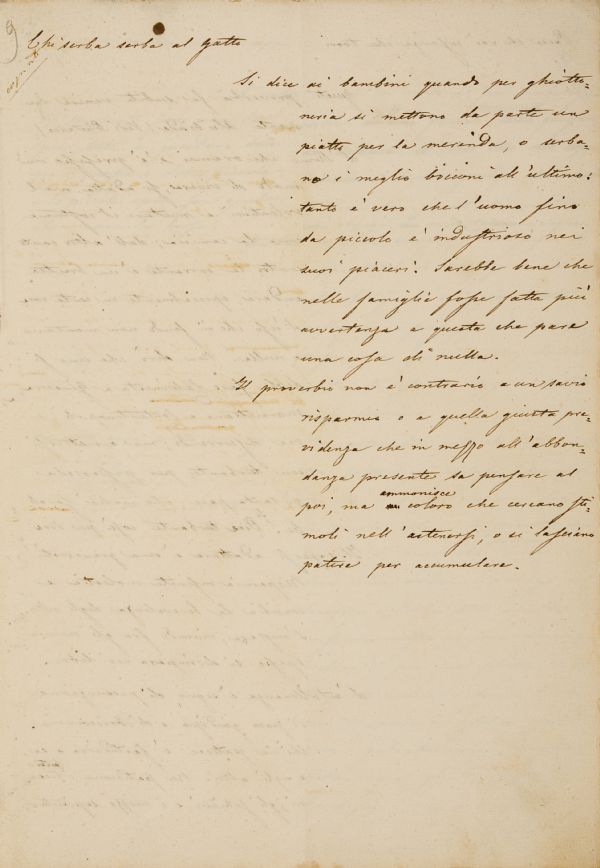 9
Chi serba serba al gatto
Si dice ai bambini quando per ghiotto-
neria si mettono da parte un
piatto per la merenda, o serba-
no i meglio bocconi all'ultimo:
tanto è vero che l'uomo fino
da piccolo è industrioso nei
suoi piaceri. Sarebbe bene che
nelle famiglie fosse fatta più
avvertenza a questa che pare
una cosa di nulla.
Il proverbio non è contrario a un savio
risparmio o a quella giusta pre-
videnza che in mezzo all'abbon-
danza presente sa pensare al
ammonisce
poi, ma coloro che cercano sti-
moli nell'astenersi, o si lasciano
patire per accumulare.